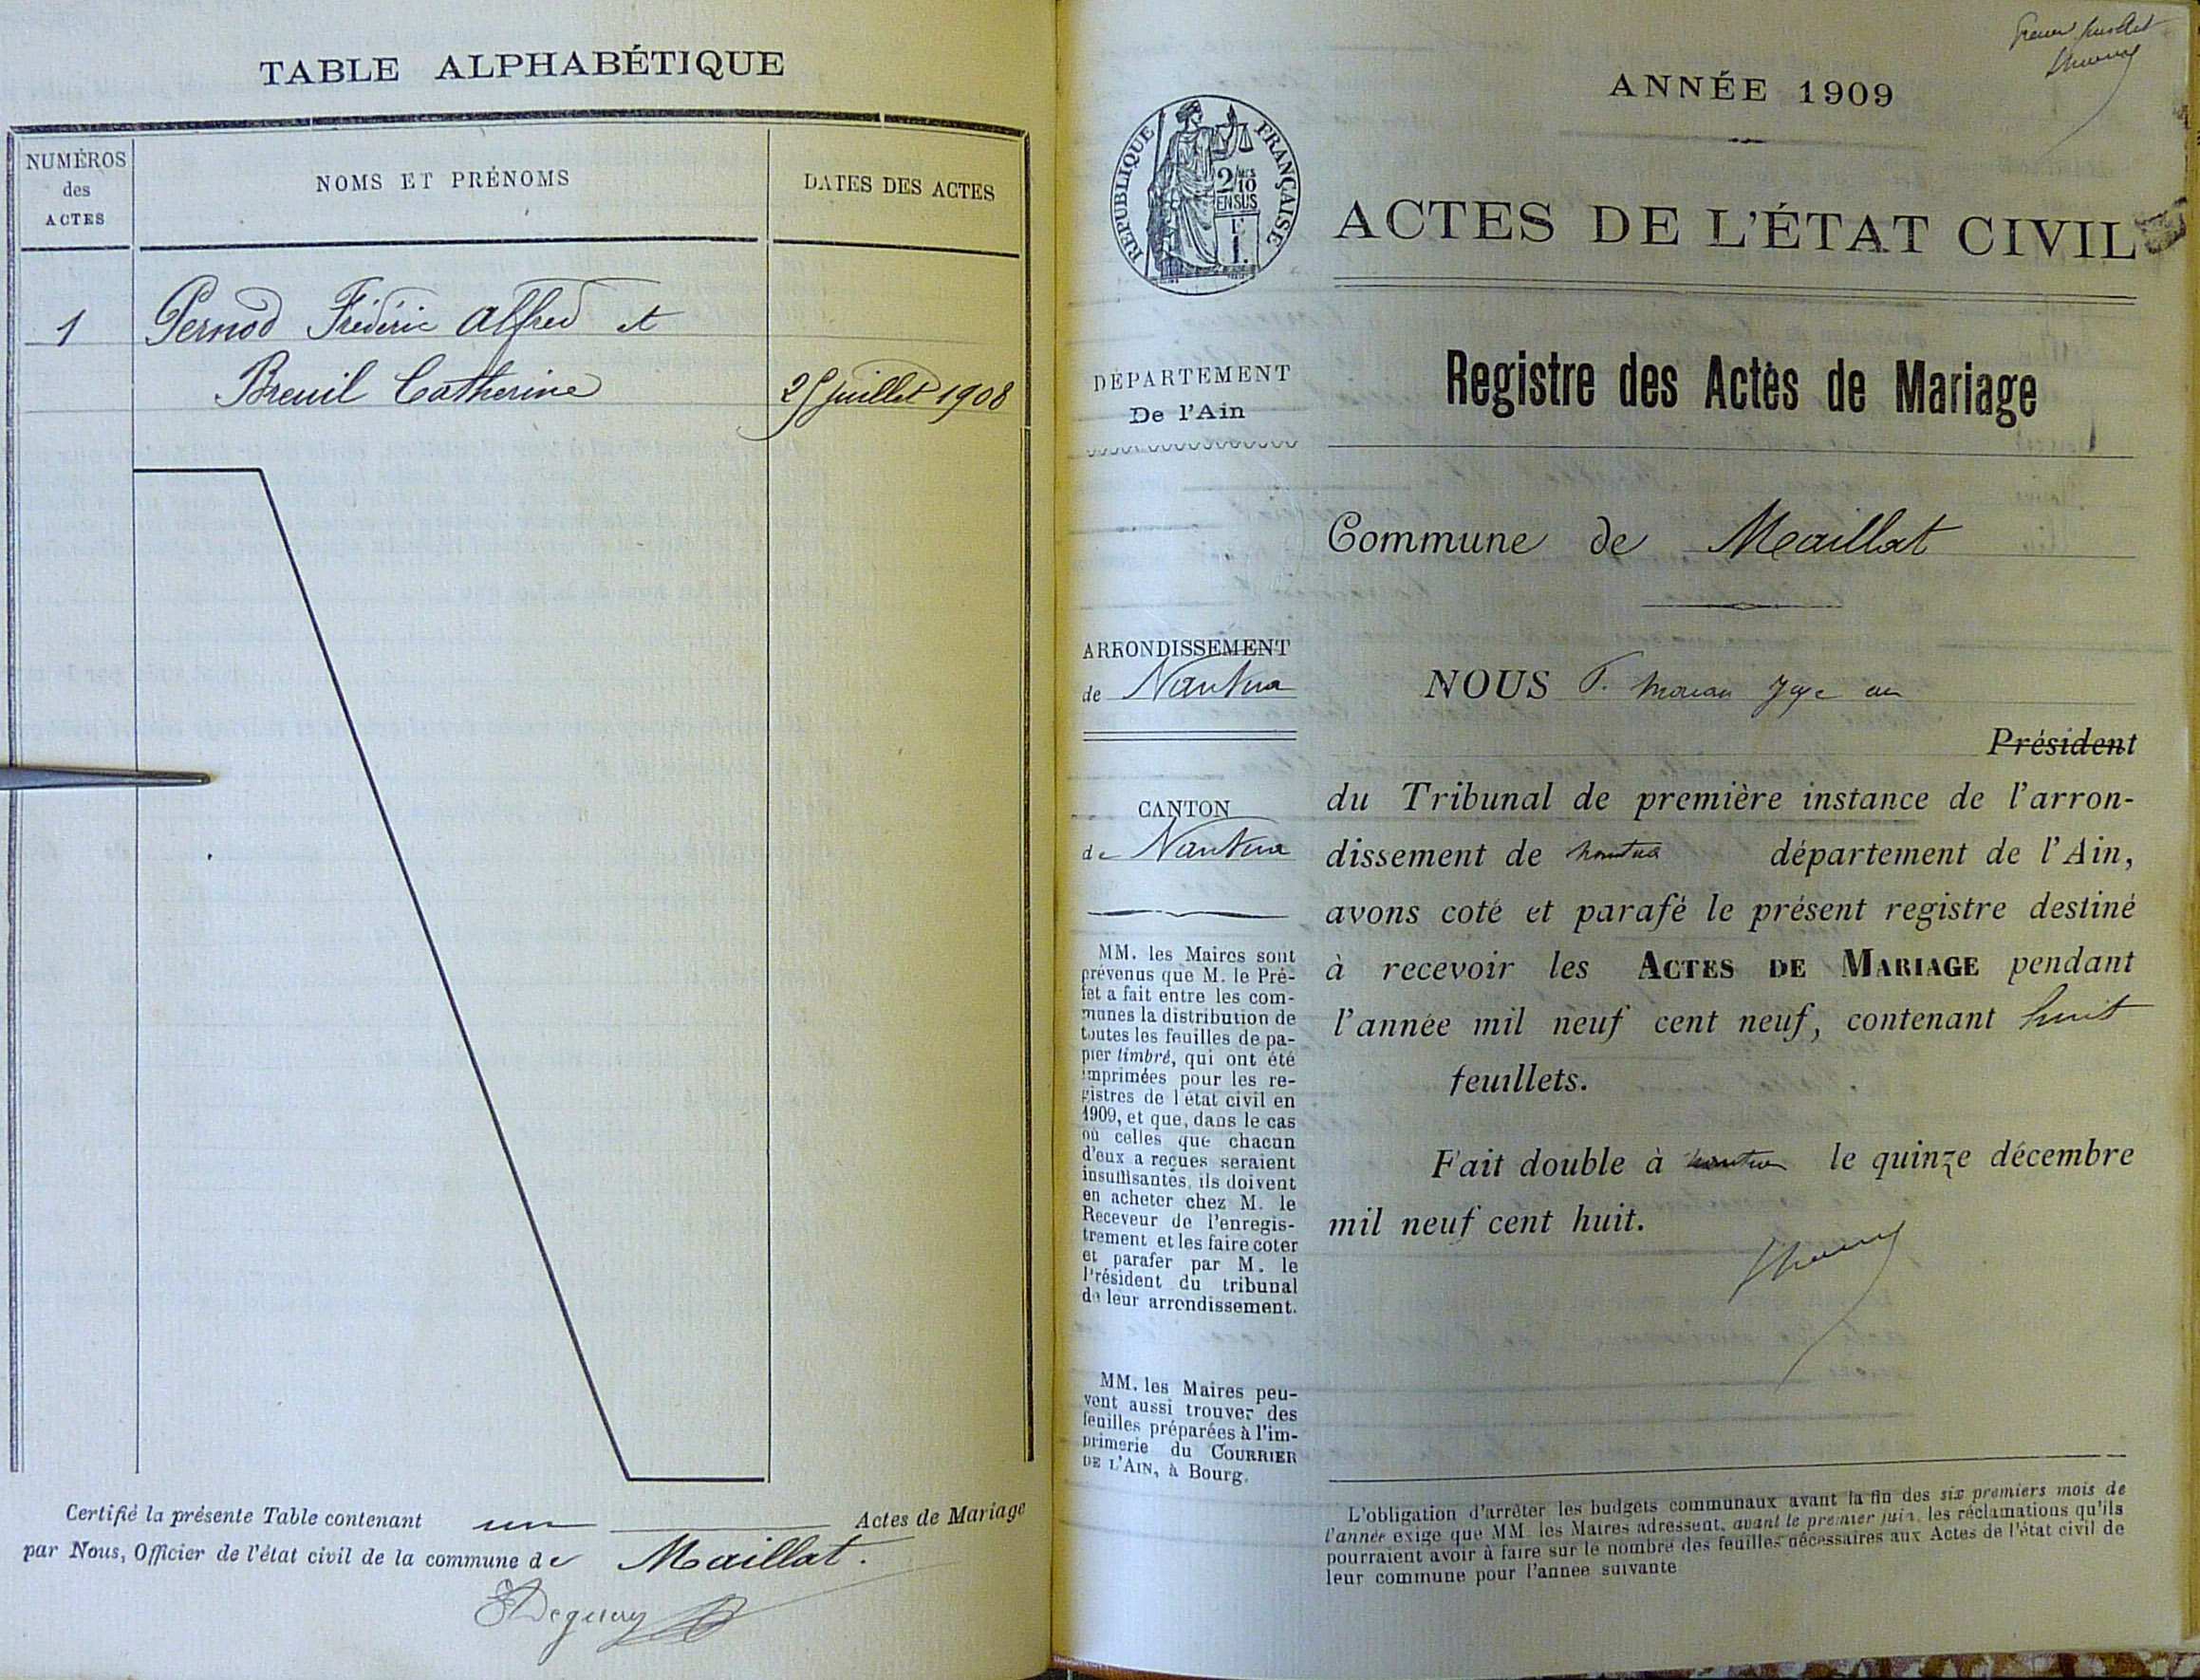 TABLE ALPHABÉTIQUE
NUMÉROS
des
ACTES
NOMS ET PRÉNOMS
DATES DES ACTES
1 Pernod Frédéric Alfred et
Breuil Catherine 25 juillet 1908
Certifié la présente Table contenant un Actes de Mariage
par Nous, Officier de l'état civil de la commune de Maillat.
ANNÉE 1909
RÉPUBLIQUE FRANÇAISE
2/10
EN SUS
ACTES DE L'ÉTAT CIVIL
DÉPARTEMENT
De l'Ain
ARRONDISSEMENT
de Nantua
CANTON
de Nantua
MM. les Maires sont
prévenus que M. le Pré-
fet a fait entre les com-
munes la distribution de
toutes les feuilles de pa-
pier timbré, qui ont été
imprimées pour les re-
gistres de l'état civil en
1909, et que, dans le cas
où celles que chacun
d'eux a reçues seraient
insuffisantes, ils doivent
en acheter chez M. le
Receveur de l'enregis-
trement et les faire coter
et parafer par M. le
Président du tribunal
de leur arrondissement.
MM. les Maires peu-
vent aussi trouver des
feuilles préparées à l'im-
primerie du COURRIER
DE L'AIN, à Bourg.
Registre des Actes de Mariage
Commune de Maillat
NOUS
Président
du Tribunal de première instance de l'arron-
dissement de Nantua département de l'Ain,
avons coté et parafé le présent registre destiné
à recevoir les ACTES DE MARIAGE pendant
l'année mil neuf cent neuf, contenant huit
feuillets.
Fait double à Nantua le quinze décembre
mil neuf cent huit.
L'obligation d'arrêter les budgets communaux avant la fin des six premiers mois de
l'année exige que MM. les Maires adressent, avant le premier juin, les réclamations qu'ils
pourraient avoir à faire sur le nombre des feuilles nécessaires aux Actes de l'état civil de
leur commune pour l'année suivante